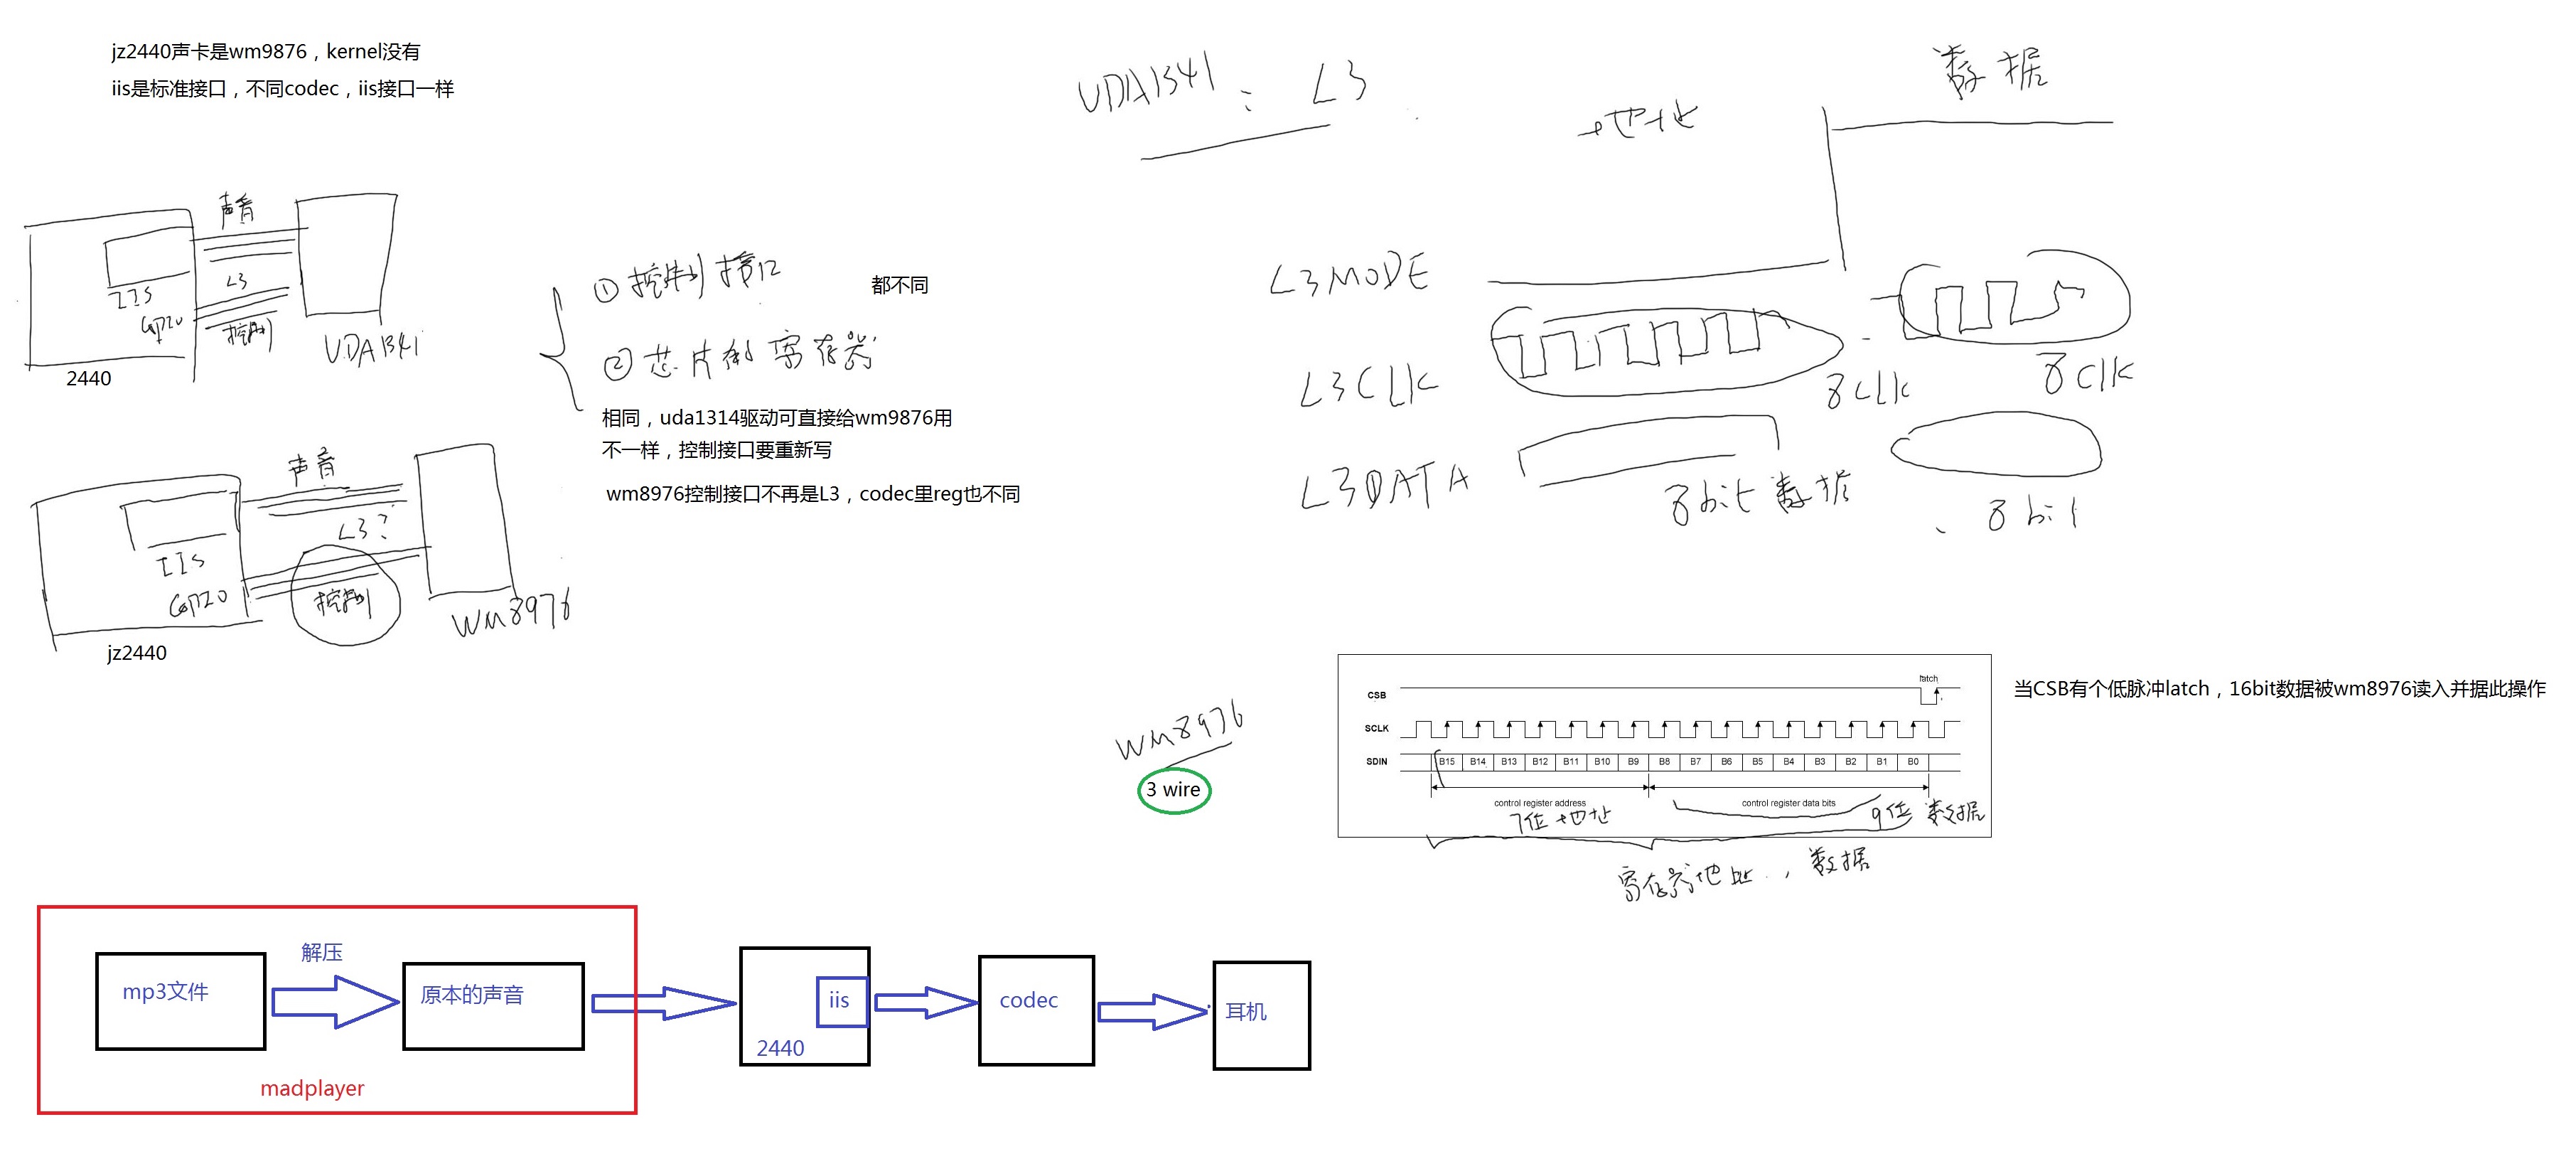 jz2440声卡是wm9876，kernel没有
iis是标准接口，不同codec，iis接口一样
声音
IIS
L3
GPIO
控制
UDA1341
2440
① 控制接口
都不同
② 芯片的寄存器
相同，uda1314驱动可直接给wm9876用
不一样，控制接口要重新写
wm8976控制接口不再是L3，codec里reg也不同
声音
IIS
L3?
GPIO
控制
WM8976
jz2440
UDA1341：L3
地址
数据
L3MODE
L3CLK
8clk
8clk
L3DATA
8bit数据
8bit
WM8976
3 wire
latch
CSB
SCLK
SDIN
B15 B14 B13 B12 B11 B10 B9 B8 B7 B6 B5 B4 B3 B2 B1 B0
control register address
control register data bits
7位地址
9位数据
寄存器地址，数据
当CSB有个低脉冲latch，16bit数据被wm8976读入并据此操作
mp3文件
解压
原本的声音
madplayer
iis
2440
codec
耳机